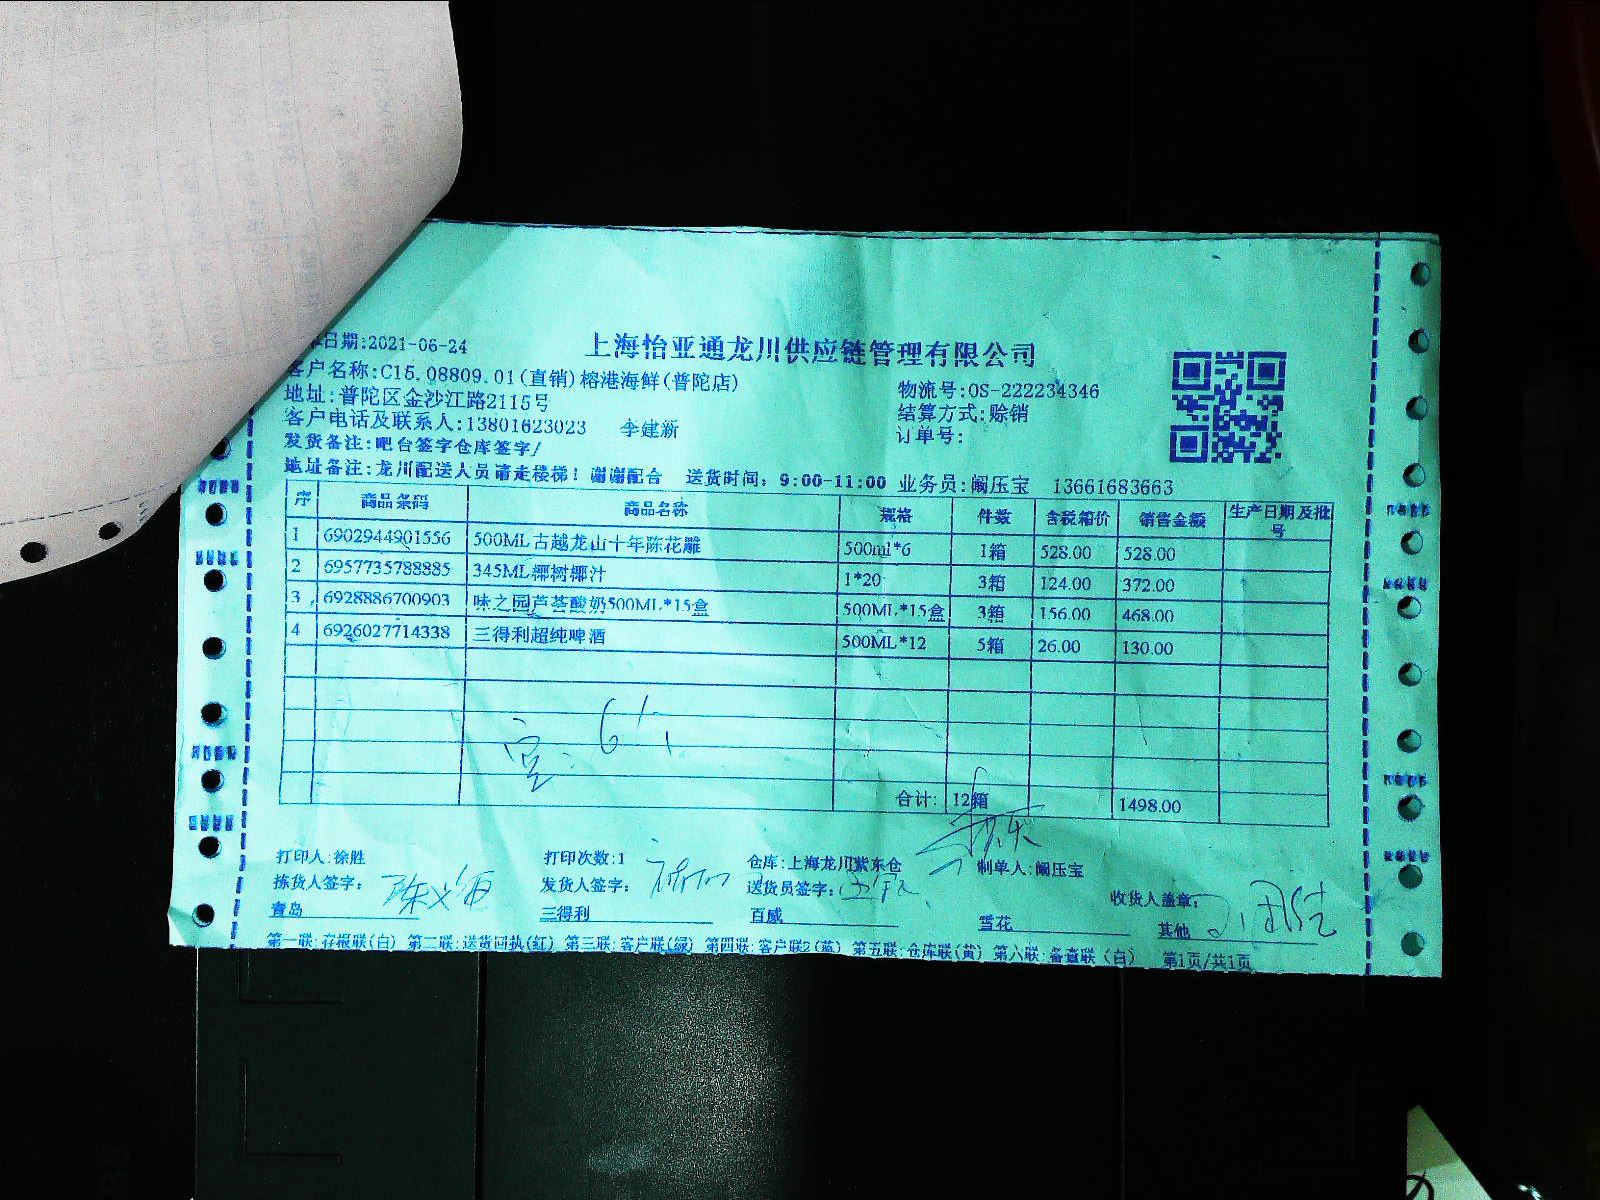 日期:2021-06-24
上海怡亚通龙川供应链管理有限公司
客户名称:C15.08809.01(直销)榕港海鲜(普陀店)
物流号:OS-222234346
地址:普陀区金沙江路2115号
结算方式:赊销
客户电话及联系人:13801623023 李建新
订单号:
发货备注:吧台签字仓库签字/
地址备注:龙川配送人员请走楼梯！谢谢配合 送货时间: 9:00-11:00 业务员:阚压宝 13661683663
序 商品条码 商品名称 规格 件数 含税箱价 销售金额 生产日期及批号
1 6902944901556 500ML古越龙山十年陈花雕 500ml*6 1箱 528.00 528.00
2 6957735788885 345ML椰树椰汁 1*20 3箱 124.00 372.00
3 6928886700903 味之园芦荟酸奶500ML*15盒 500ML*15盒 3箱 156.00 468.00
4 6926027714338 三得利超纯啤酒 500ML*12 5箱 26.00 130.00
合计: 12箱 1498.00
打印人:徐胜 打印次数:1 仓库:上海龙川紫东仓 制单人:阚压宝
拣货人签字: 发货人签字: 送货员签字: 收货人盖章:
青岛 三得利 百威 雪花 其他
第一联:存根联(白) 第二联:送货回执(红) 第三联:客户联(绿) 第四联:客户联2(蓝) 第五联:仓库联(黄) 第六联:备查联(白) 第1页/共1页